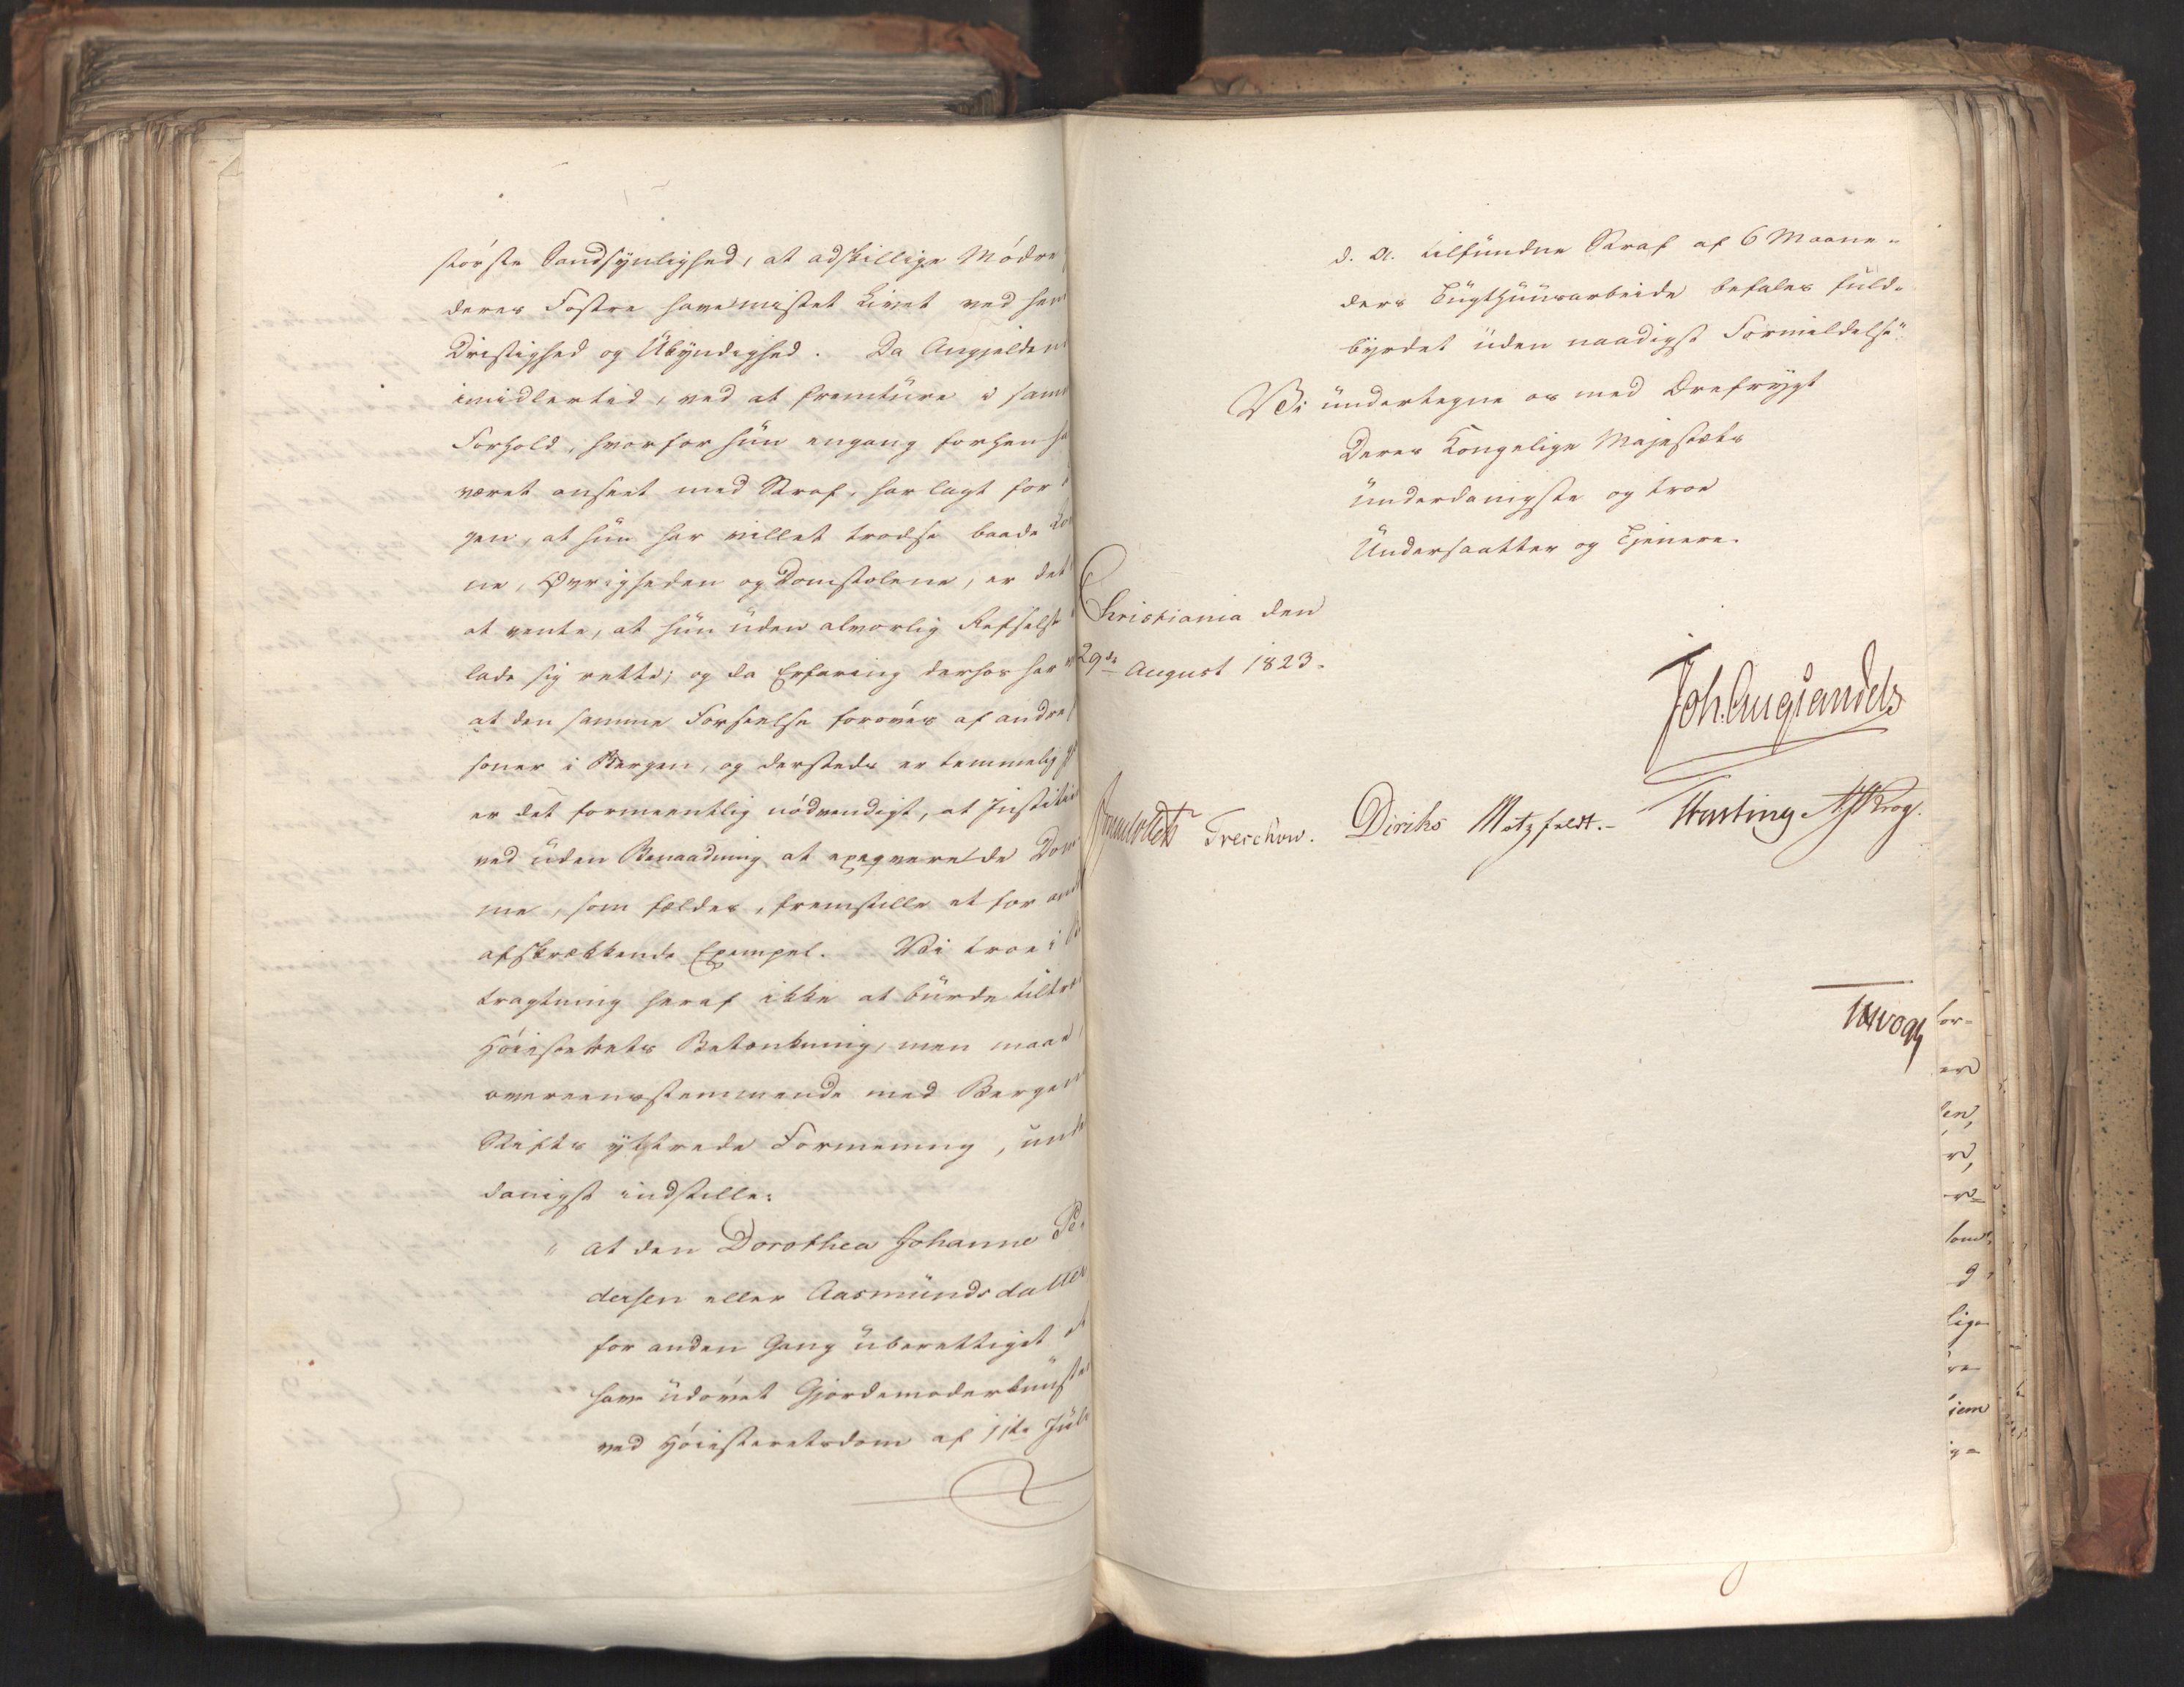 største Sandsynlighed, at adskillige Mødre
deres Fostre have mistet Livet ved hen
Dristighed og Ukyndighed. Da Angjelden
imidlertid, ved at fremture i sam
Forhold, hvorfor hun engang forhen ha
været anseet med Straf, har lagt for
gen, at hun har villet trodse baade Lo
ne, Øvrigheden og Domstolene, er det
at vente, at hun uden alvorlig Refselse
lade sig rette; og da Erfaring derhos har
at den samme Forseelse forøves af andre
soner i Bergen, og dersteds er temmelig
er det formeentlig nødvendigt, at Justitien
ved uden Benaadning at exeqvere de Dom
me, som fældes, fremstille et for and
afskrækkende Exempel. Vi troe i Be
tragtning heraf ikke at burde tiltræ
Høiesterets Betænkning, men maae
overeensstemmende med Bergen
Stifts yttrede Formening, unde
danigst indstille:
" at den Dorothea Johanne Pe-
dersen eller Aasmundsdatter
for anden Gang uberettiget at
have udøvet Gjordemoderkunsten
ved Høiesteretsdom af 11te Juli
d. A. tilfundne Straf af 6 Maane-
ders Tugthuusarbeide befales fuld-
byrdet uden naadigst Formildelse"
Vi undertegne os med Ærefrygt
Deres Kongelige Majestæts
underdanigste og troe
Undersaatter og Tjenere.
Christiania den
29de August 1823.
Joh. Aug. Sandels
Sommerhielm Treschow. Diriks Motzfeldt.- Fasting Krog.
Vogt
for-
er
en,
r,
som
g
lige
re
iem